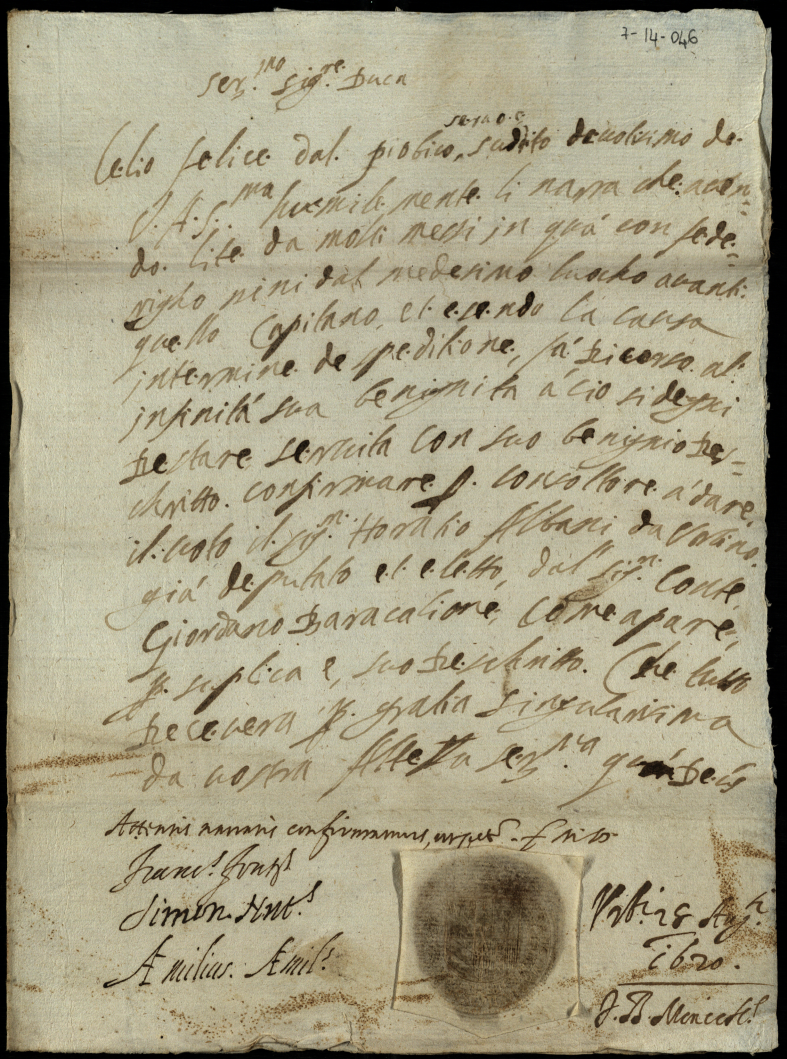 7-14-046
Ser.mo Sig.re Duca
servo e
Celio felice dal piobico, sudito devotissimo de
S. A. S.ma humilemente li narra che aven=
do lite da molti messi in quá con fede=
righo nini dal medesimo luocho avanti
quello Capitano, et esendo la causa
in termine de speditione, fá Ricorso al
infinitá sua benignita ácio si degni
Restare servita con suo benignio Res=
chritto confirmare p. consoltore á dare
il voto il sig.r Horatio Albani da Urbino
giá deputato et eletto, dal sig.r Conte
Giordano Baracalione, Come apare,
p. suplica e, suo Reschritto. Che tutto
Receverá p. gratia singularissima
da vostra Altezza ser.ma
Attentis narratis confirmamus, ut petitur
Simon Ant.s
Æmilius Æmil.s
Urb.i 28 Aug.ti
1620.